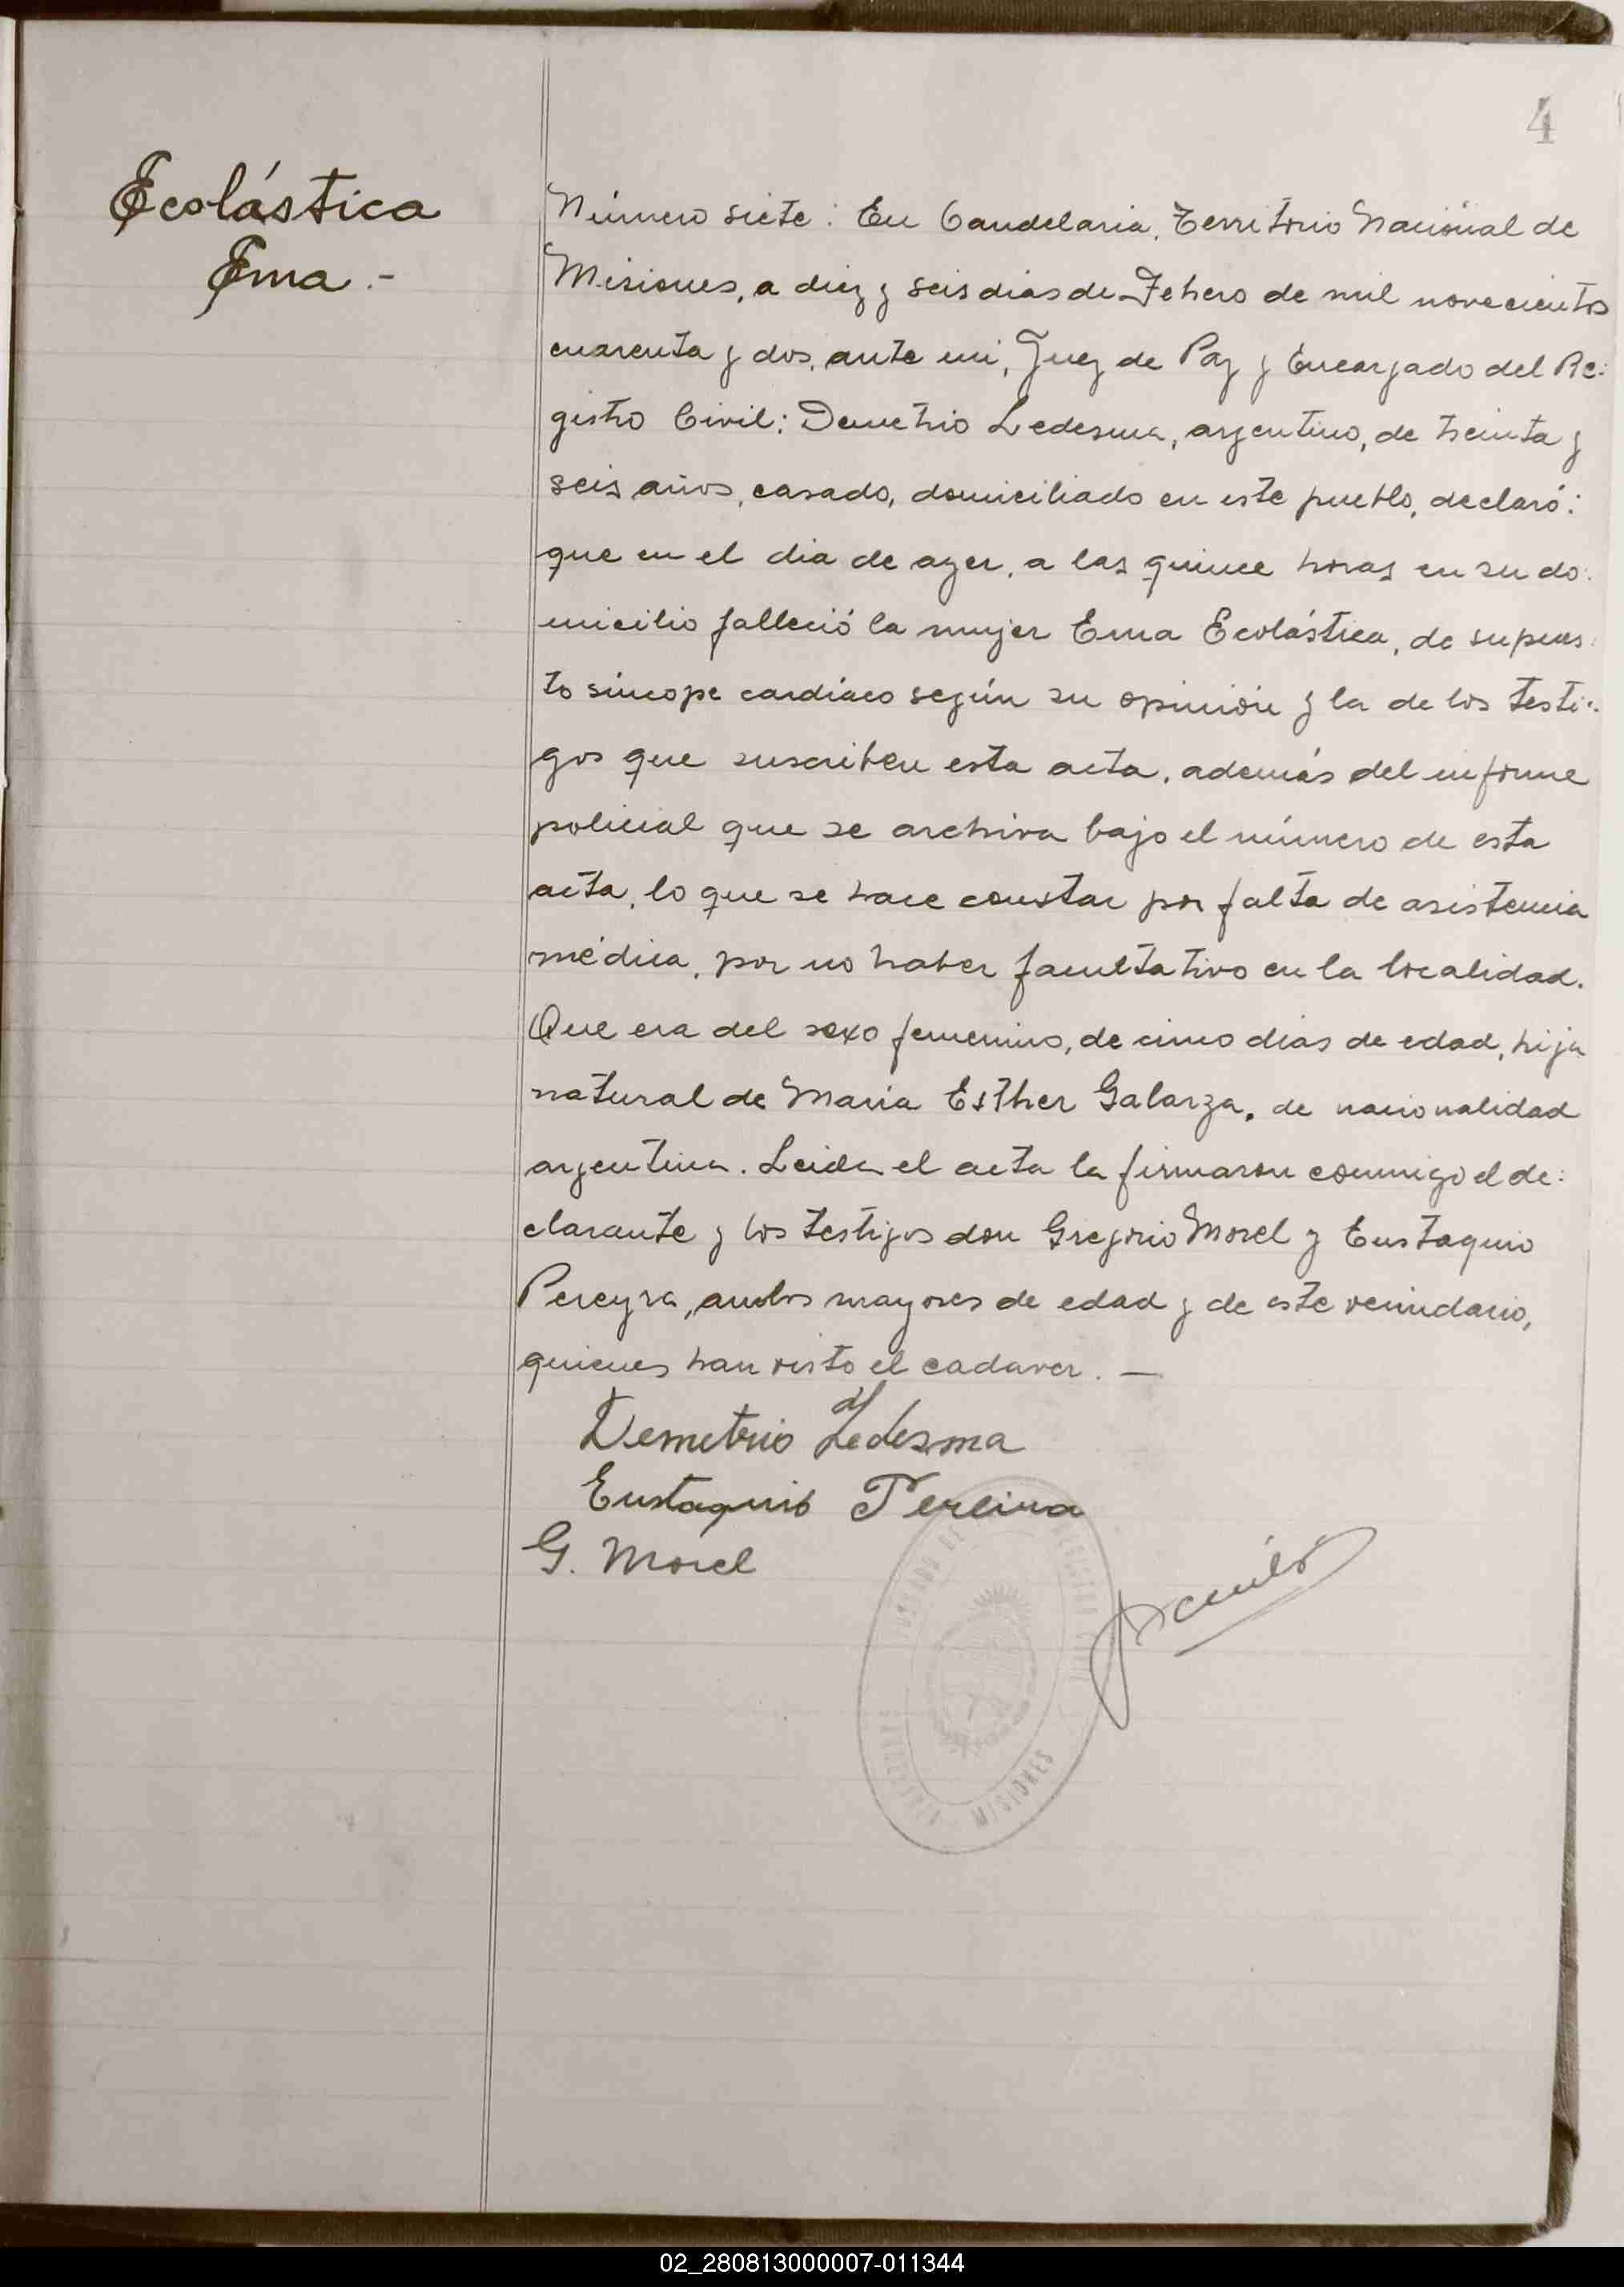 4
Ecolástica
Ema.-
Número siete: En Candelaria, Territorio Nacional de
Misiones, a diez y seis dias de Febrero de mil novecientos
cuarenta y dos, ante mi, Juez de Paz y Encargado del Re:
gistro Civil: Demetrio Ledesma, argentino, de treinta y
seis años, casado, domiciliado en este pueblo, declaró:
que en el dia de ayer, a las quince horas en su do:
micilio falleció la mujer Ema Ecolástica, de supues:
to síncope cardíaco según su opinión y la de los testi:
gos que suscriben esta acta, además del informe
policial que se archiva bajo el número de esta
acta, lo que se hace constar por falta de asistencia
médica, por no haber facultativo en la localidad.
Que era del sexo femenino, de cinco dias de edad, hija
natural de Maria Esther Galarza, de nacionalidad
argentina. Leida el acta la firmaron conmigo el de:
clarante y los testigos don Gregorio Morel y Eustaquio
Pereyra, ambos mayores de edad y de este vecindario,
quienes han visto el cadaver. —
Demetrio Ledesma
Eustaquio Pereira
G. Morel
JUZGADO DE
REGISTRO CIVIL
CANDELARIA MISIONES
02_280813000007-011344